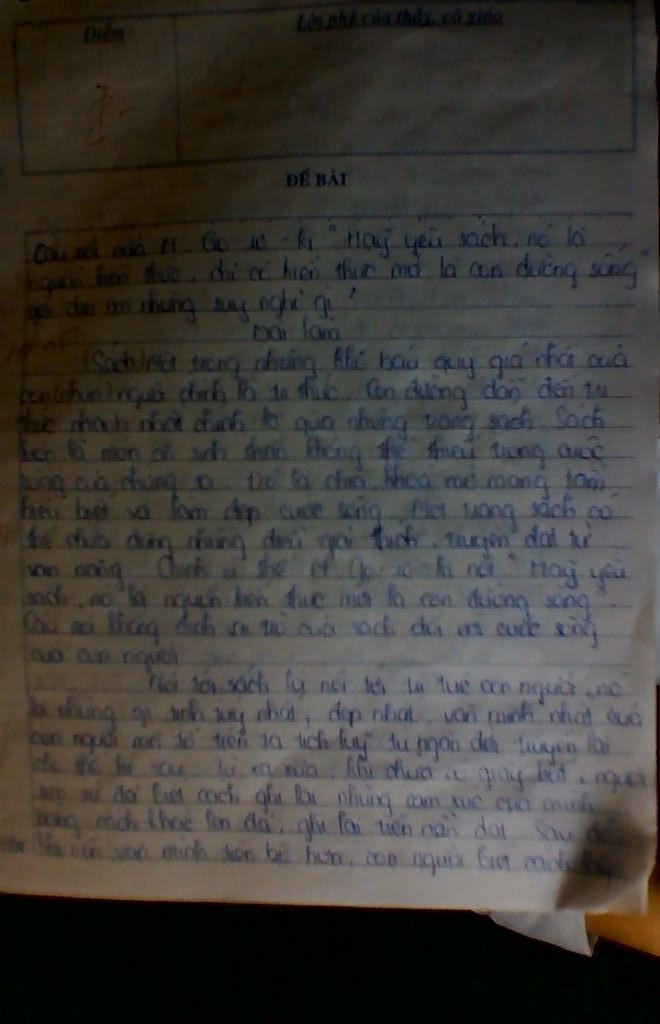 Điểm
Lời phê của thầy, cô giáo
ĐỀ BÀI
Câu nói của M. Go-rơ-ki "Hãy yêu sách, nó là
nguồn kiến thức, chỉ có kiến thức mới là con đường sống"
gợi cho em những suy nghĩ gì?
Bài làm
(Sách) Một trong những kho báu quý giá nhất của
con (nhưn) người chính là tri thức. Con đường dẫn đến tri
thức nhanh nhất chính là qua những trang sách. Sách
là món ăn tinh thần không thể thiếu trong cuộc
sống của chúng ta. Đó là chìa khóa mở mang tầm
hiểu biết và làm đẹp cuộc sống. Một trang sách có
thể chứa đựng những giải thích, truyền đạt từ
Chính vì thế M. Go-rơ-ki nói "Hãy yêu
sách, nó là nguồn kiến thức mới là con đường sống".
Câu nói khẳng định vai trò của sách đối với cuộc sống
của con người
Nói tới sách là nói tới trí con người, nó
là những gì tinh túy nhất, đẹp nhất, văn minh nhất của
con người mà tổ tiên ta tích lũy từ ngàn đời truyền lại
cho thế hệ sau. Từ xa xưa, khi chưa có giấy bút, người
đã biết cách ghi lại những cảm xúc của mình
bằng cách khắc lên đá, ghi lại trên nền đất. Sau đó
văn minh tiến bộ hơn, con người biết cách